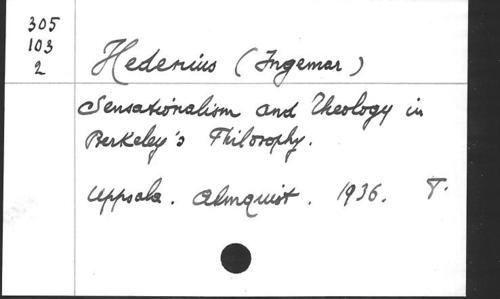 305
103
2
Hedenius (Ingemar)
Sensationalism and Theology in
Berkeley's Philosophy.
Uppsala. Almquist. 1936. T.